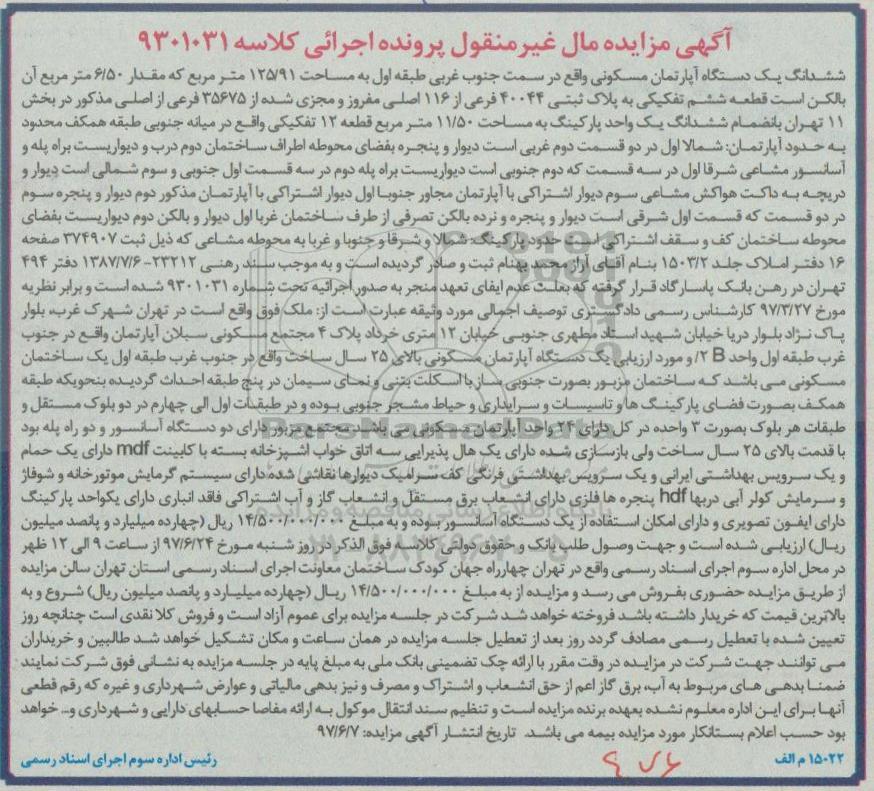 آگهی مزایده مال غیرمنقول پرونده اجرائی کلاسه ۹۳۰۱۰۳۱
ششدانگ یک دستگاه آپارتمان مسکونی واقع در سمت جنوب غربی طبقه اول به مساحت ۱۲۵/۹۱ متر مربع که مقدار ۶/۵۰ متر مربع آن
بالکن است قطعه ششم تفکیکی به پلاک ثبتی ۴۰۰۴۴ فرعی از ۱۱۶ اصلی مفروز و مجزی شده از ۳۵۶۷۵ فرعی از اصلی مذکور در بخش
۱۱ تهران بانضمام ششدانگ یک واحد پارکینگ به مساحت ۱۱/۵۰ متر مربع قطعه ۱۲ تفکیکی واقع در میانه جنوبی طبقه همکف محدود
به حدود آپارتمان: شمالا اول در دو قسمت دوم غربی است دیوار و پنجره بفضای محوطه اطراف ساختمان دوم درب و دیواریست براه پله و
آسانسور مشاعی شرقا اول در سه قسمت که دوم جنوبی است دیواریست براه پله دوم در سه قسمت اول جنوبی و سوم شمالی است دیوار و
دریچه به داکت هواکش مشاعی سوم دیوار اشتراکی با آپارتمان مجاور جنوبا اول دیوار اشتراکی با آپارتمان مذکور دوم دیوار و پنجره سوم
در دو قسمت که قسمت اول شرقی است دیوار و پنجره و نرده بالکن تصرفی از طرف ساختمان غربا اول دیوار و بالکن دوم دیواریست بفضای
محوطه ساختمان کف و سقف اشتراکی است حدود پارکینگ: شمالا و شرقا و جنوبا و غربا به محوطه مشاعی که ذیل ثبت ۳۷۴۹۰۷ صفحه
۱۶ دفتر املاک جلد ۱۵۰۳/۲ بنام آقای آراز محمد بهنام ثبت و صادر گردیده است و به موجب سند رهنی ۲۳۲۱۲-۱۳۸۷/۷/۶ دفتر ۴۹۴
تهران در رهن بانک پاسارگاد قرار گرفته که بعلت عدم ایفای تعهد منجر به صدور اجرائیه تحت شماره ۹۳۰۱۰۳۱ شده است و برابر نظریه
مورخ ۹۷/۳/۲۷ کارشناس رسمی دادگستری توصیف اجمالی مورد وثیقه عبارت است از: ملک فوق واقع است در تهران شهرک غرب، بلوار
پاک نژاد بلوار دریا خیابان شهید استاد مطهری جنوبی خیابان ۱۲ متری خرداد پلاک ۴ مجتمع مسکونی سبلان آپارتمان واقع در جنوب
غرب طبقه اول واحد B ۲/ و مورد ارزیابی یک دستگاه آپارتمان مسکونی بالای ۲۵ سال ساخت واقع در جنوب غرب طبقه اول یک ساختمان
مسکونی می باشد که ساختمان مزبور بصورت جنوبی ساز با اسکلت بتنی و نمای سیمان در پنج طبقه احداث گردیده بنحویکه طبقه
همکف بصورت فضای پارکینگ ها و تاسیسات و سرایداری و حیاط مشجر جنوبی بوده و در طبقات اول الی چهارم در دو بلوک مستقل و
طبقات هر بلوک بصورت ۳ واحده در کل دارای ۲۴ واحد آپارتمان مسکونی می باشد مجتمع مزبور دارای دو دستگاه آسانسور و دو راه پله بود
با قدمت بالای ۲۵ سال ساخت ولی بازسازی شده دارای یک هال پذیرایی سه اتاق خواب آشپزخانه بسته با کابینت mdf دارای یک حمام
و یک سرویس بهداشتی ایرانی و یک سرویس بهداشتی فرنگی کف سرامیک دیوارها نقاشی شده دارای سیستم گرمایش موتورخانه و شوفاژ
و سرمایش کولر آبی دربها hdf پنجره ها فلزی دارای انشعاب برق مستقل و انشعاب گاز و آب اشتراکی فاقد انباری دارای یکواحد پارکینگ
دارای آیفون تصویری و دارای امکان استفاده از یک دستگاه آسانسور بوده و به مبلغ ۱۴/۵۰۰/۰۰۰/۰۰۰ ریال (چهارده میلیارد و پانصد میلیون
ریال) ارزیابی شده است و جهت وصول طلب بانک و حقوق دولتی کلاسه فوق الذکر در روز شنبه مورخ ۹۷/۶/۲۴ از ساعت ۹ الی ۱۲ ظهر
در محل اداره سوم اجرای اسناد رسمی واقع در تهران چهارراه جهان کودک ساختمان معاونت اجرای اسناد رسمی استان تهران سالن مزایده
از طریق مزایده حضوری بفروش می رسد و مزایده از به مبلغ ۱۴/۵۰۰/۰۰۰/۰۰۰ ریال (چهارده میلیارد و پانصد میلیون ریال) شروع و به
بالاترین قیمت که خریدار داشته باشد فروخته خواهد شد شرکت در جلسه مزایده برای عموم آزاد است و فروش کلا نقدی است چنانچه روز
تعیین شده با تعطیل رسمی مصادف گردد روز بعد از تعطیل جلسه مزایده در همان ساعت و مکان تشکیل خواهد شد طالبین و خریداران
می توانند جهت شرکت در مزایده در وقت مقرر با ارائه چک تضمینی بانک ملی به مبلغ پایه در جلسه مزایده به نشانی فوق شرکت نمایند
ضمنا بدهی های مربوط به آب، برق گاز اعم از حق انشعاب و اشتراک و مصرف و نیز بدهی مالیاتی و عوارض شهرداری و غیره که رقم قطعی
آنها برای این اداره معلوم نشده بعهده برنده مزایده است و تنظیم سند انتقال موکول به ارائه مفاصا حسابهای دارایی و شهرداری و... خواهد
بود حسب اعلام بستانکار مورد مزایده بیمه می باشد. تاریخ انتشار آگهی مزایده: ۹۷/۶/۷
۱۵۰۲۲ م الف
رئیس اداره سوم اجرای اسناد رسمی